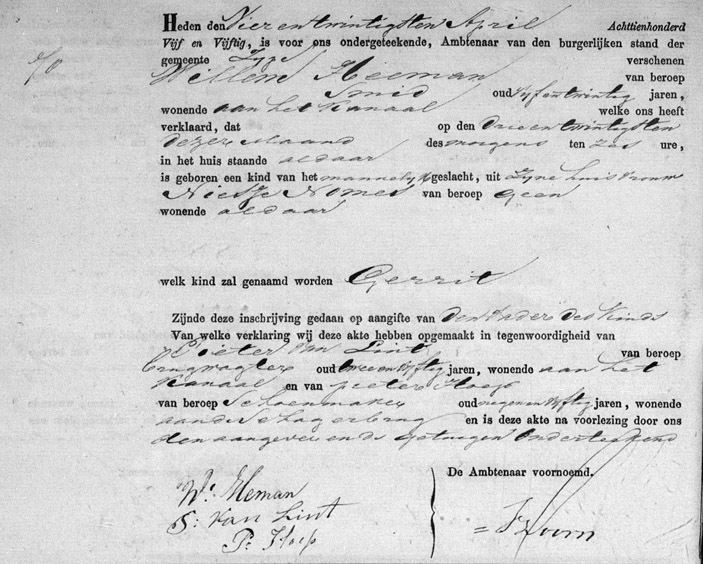 Heden den Vier en twintigsten April Achttienhonderd
Vijf en Vijftig, is voor ons ondergeteekende, Ambtenaar van den burgerlijken stand der
gemeente Zype verschenen
Willem Heeman van beroep
Smid oud vyf en twintig jaren,
wonende aan het Kanaal welke ons heeft
verklaard, dat op den drie en twintigsten
dezer Maand des morgens ten zes ure,
in het huis staande aldaar
is geboren een kind van het mannelyk geslacht, uit zyne huisvrouw
Nietje Nomes van beroep Geen
wonende aldaar
welk kind zal genaamd worden Gerrit
Zijnde deze inschrijving gedaan op aangifte van den Vader des Kinds
Van welke verklaring wij deze akte hebben opgemaakt in tegenwoordigheid van
Pieter van Lint van beroep
brugwagter oud twee en vyftig jaren, wonende aan het
Kanaal en van pieter Hoep
van beroep Schoenmaker oud negen en vyftig jaren, wonende
aan de Schagerbrug en is deze akte na voorlezing door ons
den aangever en de getuigen onderteekend
De Ambtenaar voornoemd.
Wm. Heman
P: van Lint
Pr. Hoep